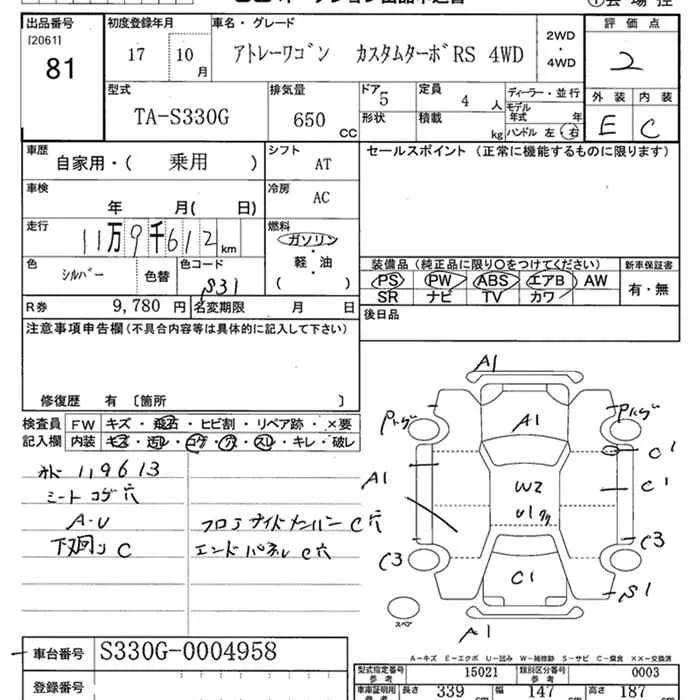 出品番号 初度登録年月 車名・グレード 評価点
[2061]
81
17 10月 アトレーワゴン カスタムターボRS 4WD
2WD・4WD
2
型式 排気量 ドア 定員 ディーラー・並行 外装 内装
TA-S330G 650CC 5 4人
形状 積載 kg モデル年式 年
ハンドル 左・右
E C
車歴 シフト セールスポイント (正常に機能するものに限ります)
自家用・( 乗用 ) AT
車検 冷房
年 月( 日) AC
走行 燃料
11万9千612km ガソリン
軽・油
( )
色 色替 色コード
シルバー S31
装備品(純正品に限り○をつけてください) 新車保証書
PS PW ABS エアB AW 有・無
SR ナビ TV カワ
R券 9,780円 名変期限 月 日
後日品
注意事項申告欄(不具合内容等は具体的に記入して下さい)
修復歴 有 〔箇所 〕
検査員記入欄 FW キズ・飛石・ヒビ割・リペア跡・×要
内装 キズ・汚レ・コゲ・穴・スレ・キレ・破レ
119613
シートコゲ穴
A-U
下廻リC
フロアサイドメンバーC穴
エンドパネルC穴
A1
A1
A1
W2
U1
C1
A1
C1
C1
C3
C3
S1
スペア
A-キズ E-エクボ U-凹み W-補修跡 S-サビ C-腐食 XX-交換済
車台番号 S330G-0004958
登録番号
型式指定番号 参考 15021 類別区分番号 参考 0003
車庫証明用 参考 長さ 339 cm 幅 147 cm 高さ 187 cm